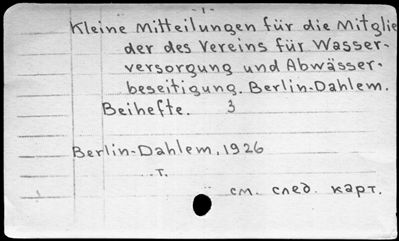 - 1 -
Kleine Mitteilungen für die Mitglie
der des Vereins für Wasser-
versorgung und Abwässer-
beseitigung. Berlin-Dahlem.
Beihefte. 3
Berlin-Dahlem, 1926
т.
см. след. карт.